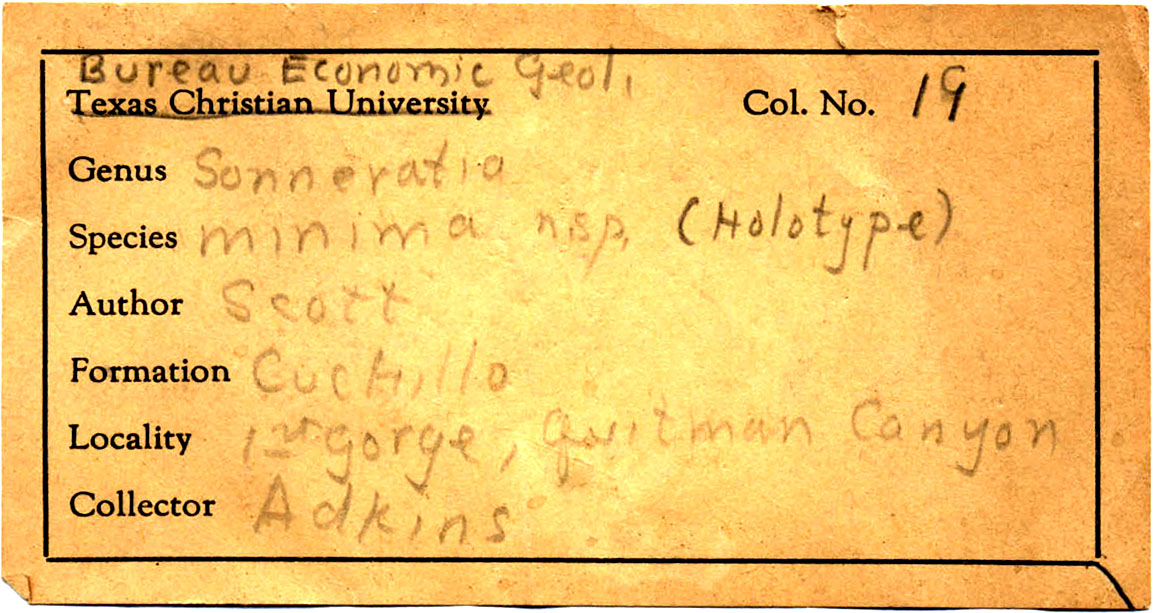 Bureau Economic Geol.
Texas Christian University Col. No. 19
Genus Sonneratia
Species minima nsp. (Holotype)
Author Scott
Formation Cuchillo
Locality 1st gorge, Quitman Canyon.
Collector Adkins